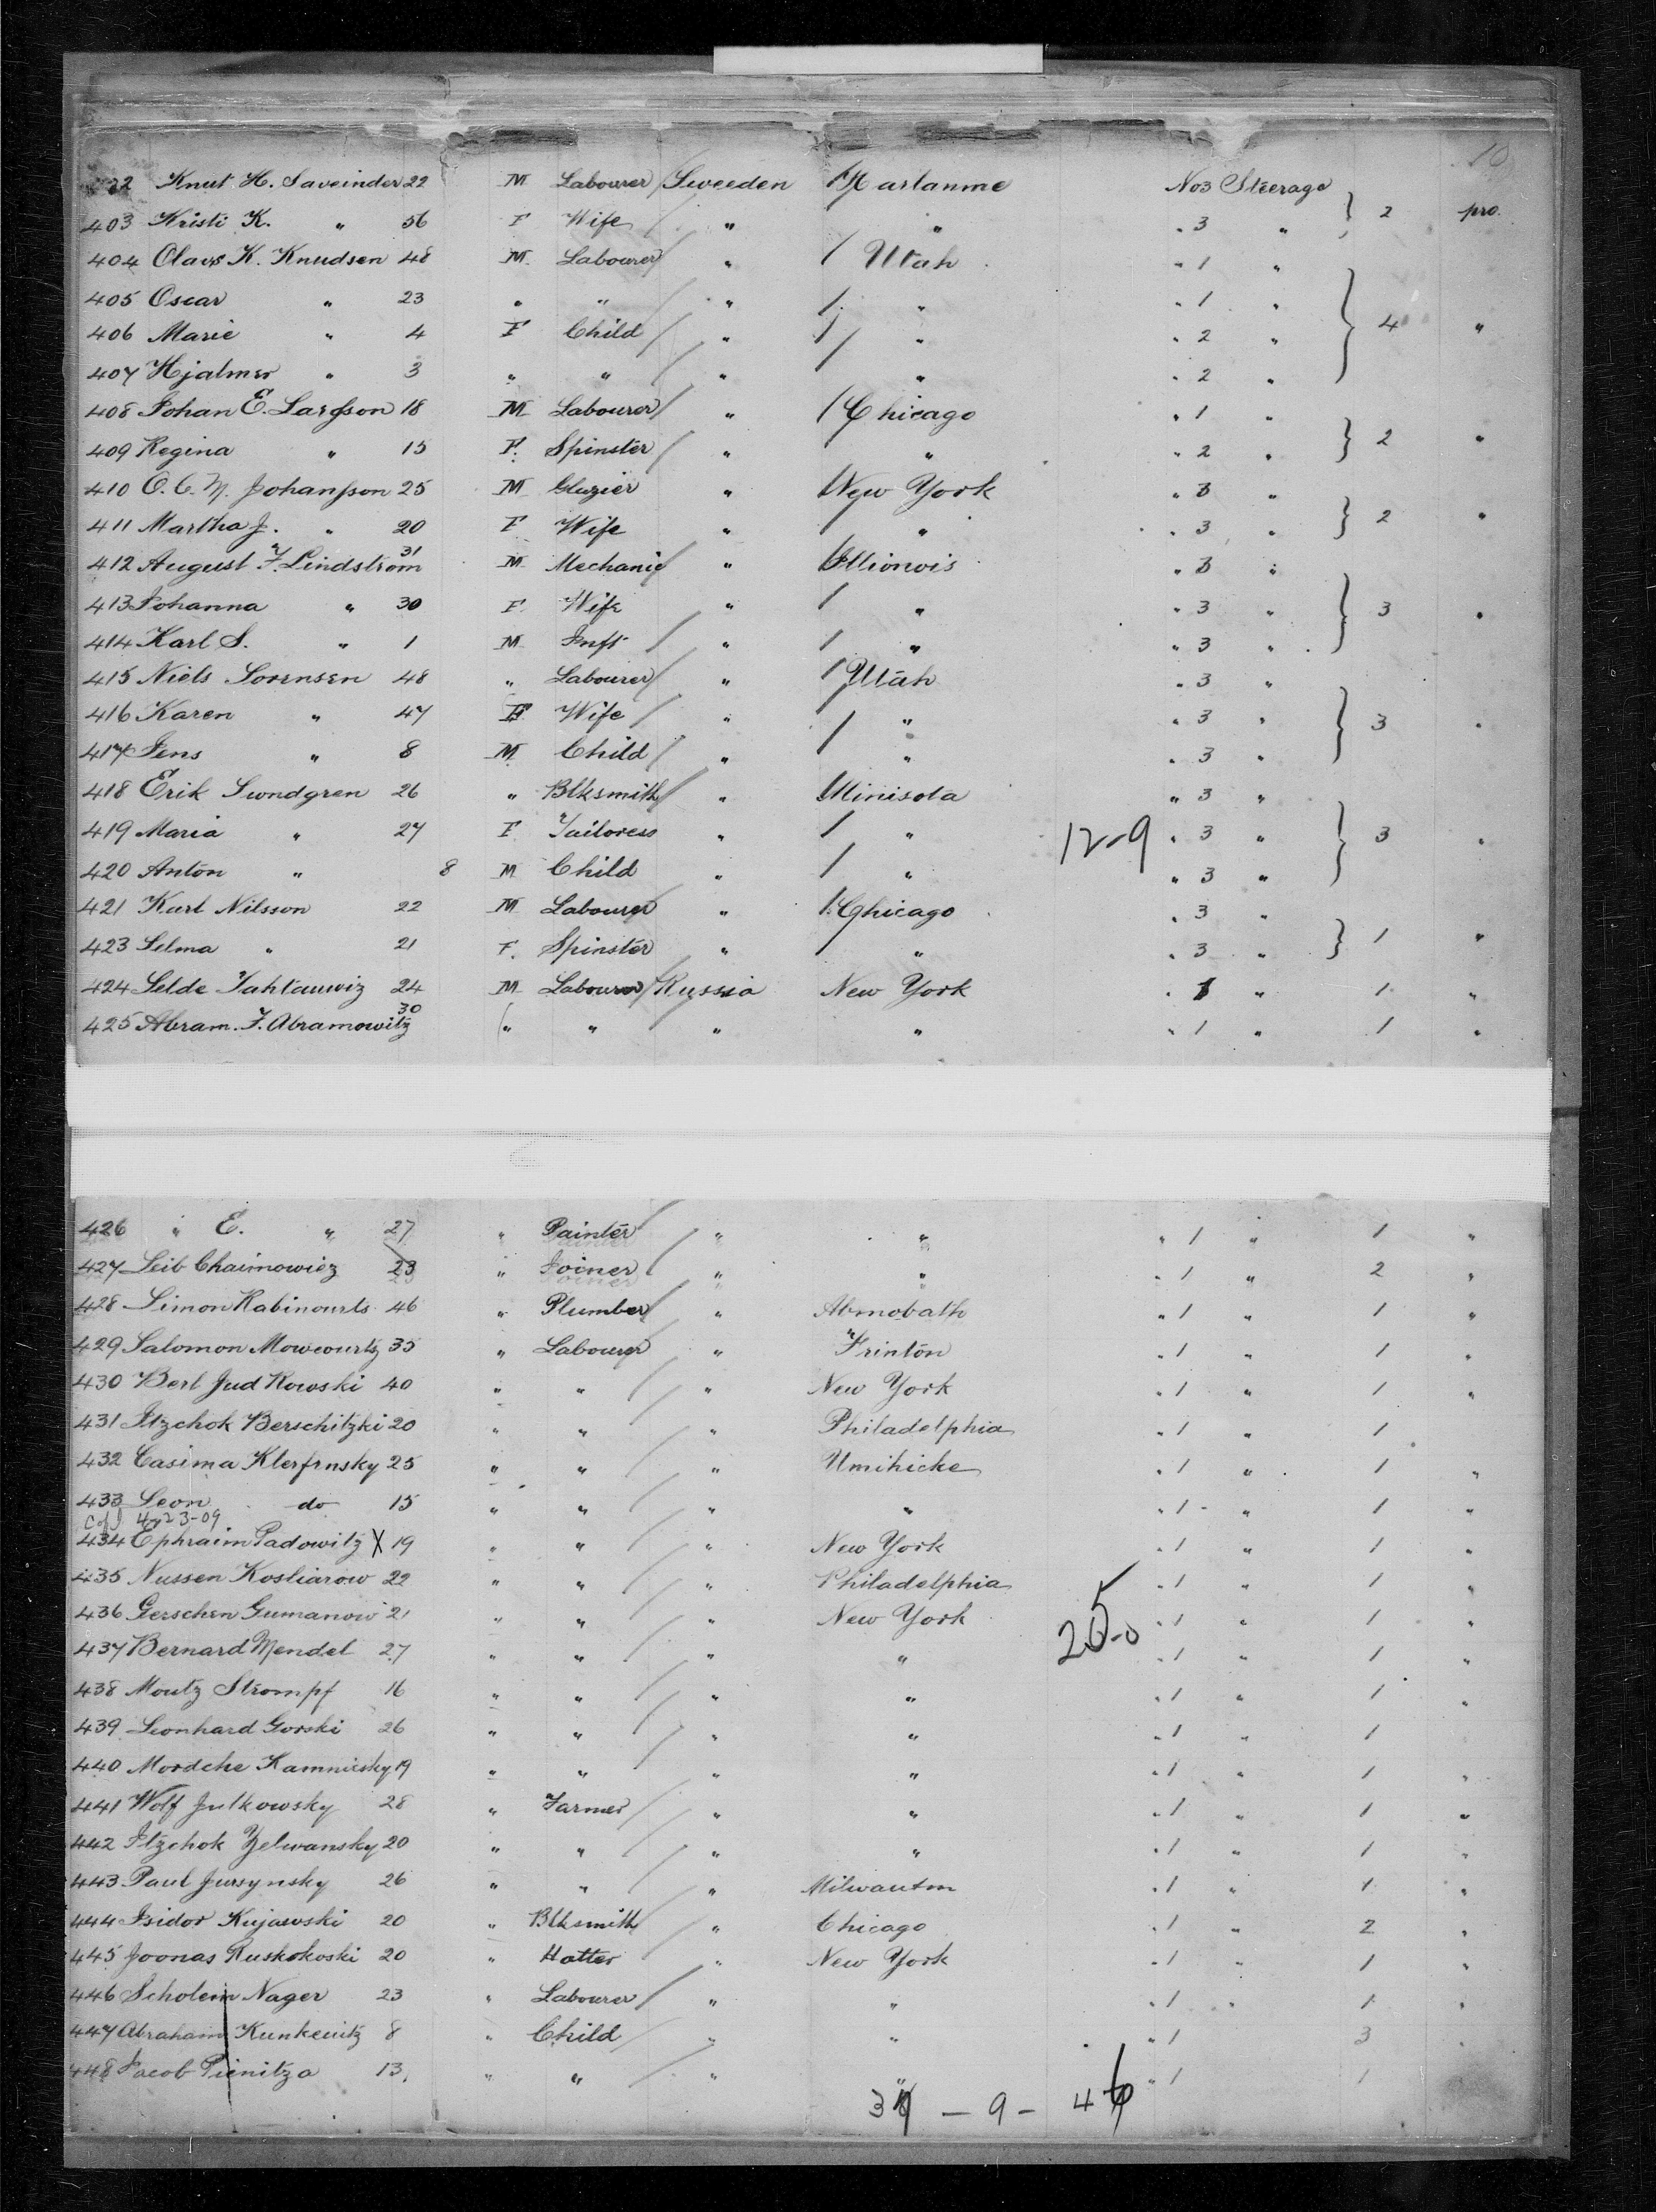 10
Knut H. Saveinder 22 M Labourer Sweeden No3 Steerage
403 Kristi K. " 56 F Wife " " " 3 " } 2 pro.
404 Olavs K. Knudsen 48 M Labourer " Utah " 1 "
405 Oscar " 23 " " " " " 1 "
406 Marie " 4 F Child " " " 2 " } 4 "
407 Hjalmer " 3 " " " " " 2 "
408 Johan E. Larsson 18 M Labourer " Chicago " 1 "
409 Regina " 15 F. Spinster " " " 2 " } 2 "
410 O. C. N. Johansson 25 M Glazier " New York " 3 "
411 Martha J. " 20 F Wife " " " 3 " } 2 "
412 August F. Lindstrom 31 M Mechanic " Illionois " 3 "
413 Johanna " 30 F. Wife " " " 3 " } 3 "
414 Karl S. " 1 M Inft " " " 3 "
415 Niels Sorensen 48 " Labourer " Utah " 3 "
416 Karen " 47 F Wife " " " 3 " } 3 "
417 Jens " 8 M Child " " " 3 "
418 Erik Sundgren 26 " Blksmith " Minisota " 3 "
419 Maria " 27 F Tailoress " " 12-9 " 3 " } 3 "
420 Anton " 8 M Child " " " 3 "
421 Kurt Nilsson 22 M Labourer " Chicago " 3 "
423 Selma " 21 F. Spinster " " " 3 " } 1 "
424 Selde Tahtauwiz 24 M Labourer Russia New York " 1 " 1 "
425 Abram. F. Abramowitz 30 " " " " " 1 " 1 "
426 " E. " 27 " Painter " " " 1 " 1 "
427 Leib Chaimowicz 23 " Joiner " " " 1 " 2 "
428 Simon Rabinourts 46 " Plumber " Abmobath " 1 " 1 "
429 Salomon Mowcourtz 35 " Labourer " Frinton " 1 " 1 "
430 Berl Jud Kowski 40 " " " New York " 1 " 1 "
431 Itzchok Berschitzki 20 " " " Philadelphia " 1 " 1
432 Casima Klerfrnsky 25 " " " Umihicke " 1 " 1 "
433 Leon do 15 " " " " " 1 " 1 "
C of I 4-23-09
434 Ephraim Padowitz X 19 " " " New York " 1 " 1 "
435 Nussen Kosliarow 22 " " " Philadelphia " 1 " 1 "
436 Gerschen Gumanow 21 " " " New York " 1 " 1 "
437 Bernard Mendel 27 " " " " " 1 " 1 "
438 Moutz Strompf 16 " " " " " 1 " 1 "
439 Leonhard Gorski 26 " " " " " 1 " 1 "
440 Mordche Kamnicsky 19 " " " " " 1 " 1 "
441 Wolf Julkowsky 28 " Farmer " " " 1 " 1 "
442 Itzchok Yelwansky 20 " " " " " 1 " 1 "
443 Paul Jursynsky 26 " " " Milwautm " 1 " 1 "
444 Isidor Kujawski 20 " Blksmith " Chicago " 1 " 2 "
445 Joonas Ruskokoski 20 " Hatter " New York " 1 " 1 "
446 Scholem Nager 23 " Labourer " " " 1 " 1 "
447 Abraham Kunkewitz 8 " Child " " " 1 3 "
448 Jacob Pienitza 13, " " " " " 1 1